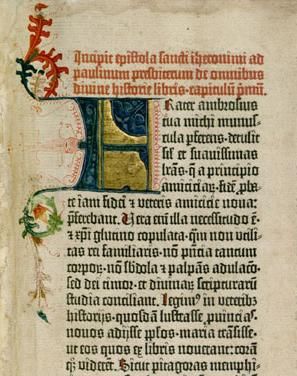 Incipit epistola sancti iheronimi ad
paulinum presbiterum de omnibus
divine historie libris. capitulū pmū.
Frater ambrosius
tua michi munus-
cula pferens. detulit
sil' et suauissimas
lr̄as. q̄ a principio
amiciciar̄. fidē pba-
te iam fidei et veteris amicicie noua:
pferebant. Vera eni illa necessitudo ē.
et xp̄i glutino copulata. qm̄ non vtili-
tas rei familiaris. nō pn̄tia tantum
corporū. nō sb̄dola et palpās adulacō.
sed dei timor. et diuinarū scripturarum
studia conciliant. Legim⁹ in veterib⁹
historijs. quosdā lustrasse puincias.
nouos adijsse pplos. maria trāsisse.
ut eos quos ex libris nouerant: corā
q̄ viderent. Sicut pitagoras memphi-